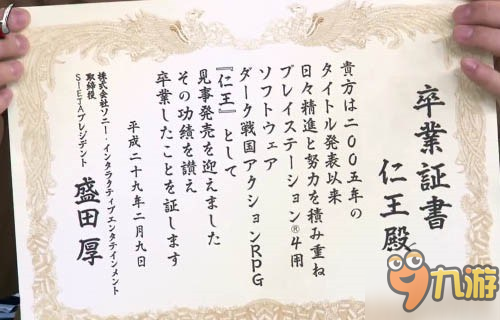 卒業証書
仁王殿
貴方は二〇〇五年の
タイトル発表以来
日々精進と努力を積み重ね
プレイステーション®4用
ソフトウェア
ダーク戦国アクションRPG
『仁王』として
見事発売を迎えました
その功績を讃え
卒業したことを証します
平成二十九年二月九日
株式会社ソニー・インタラクティブエンタテインメント
取締役
SIEJAプレジデント
盛田厚
九游